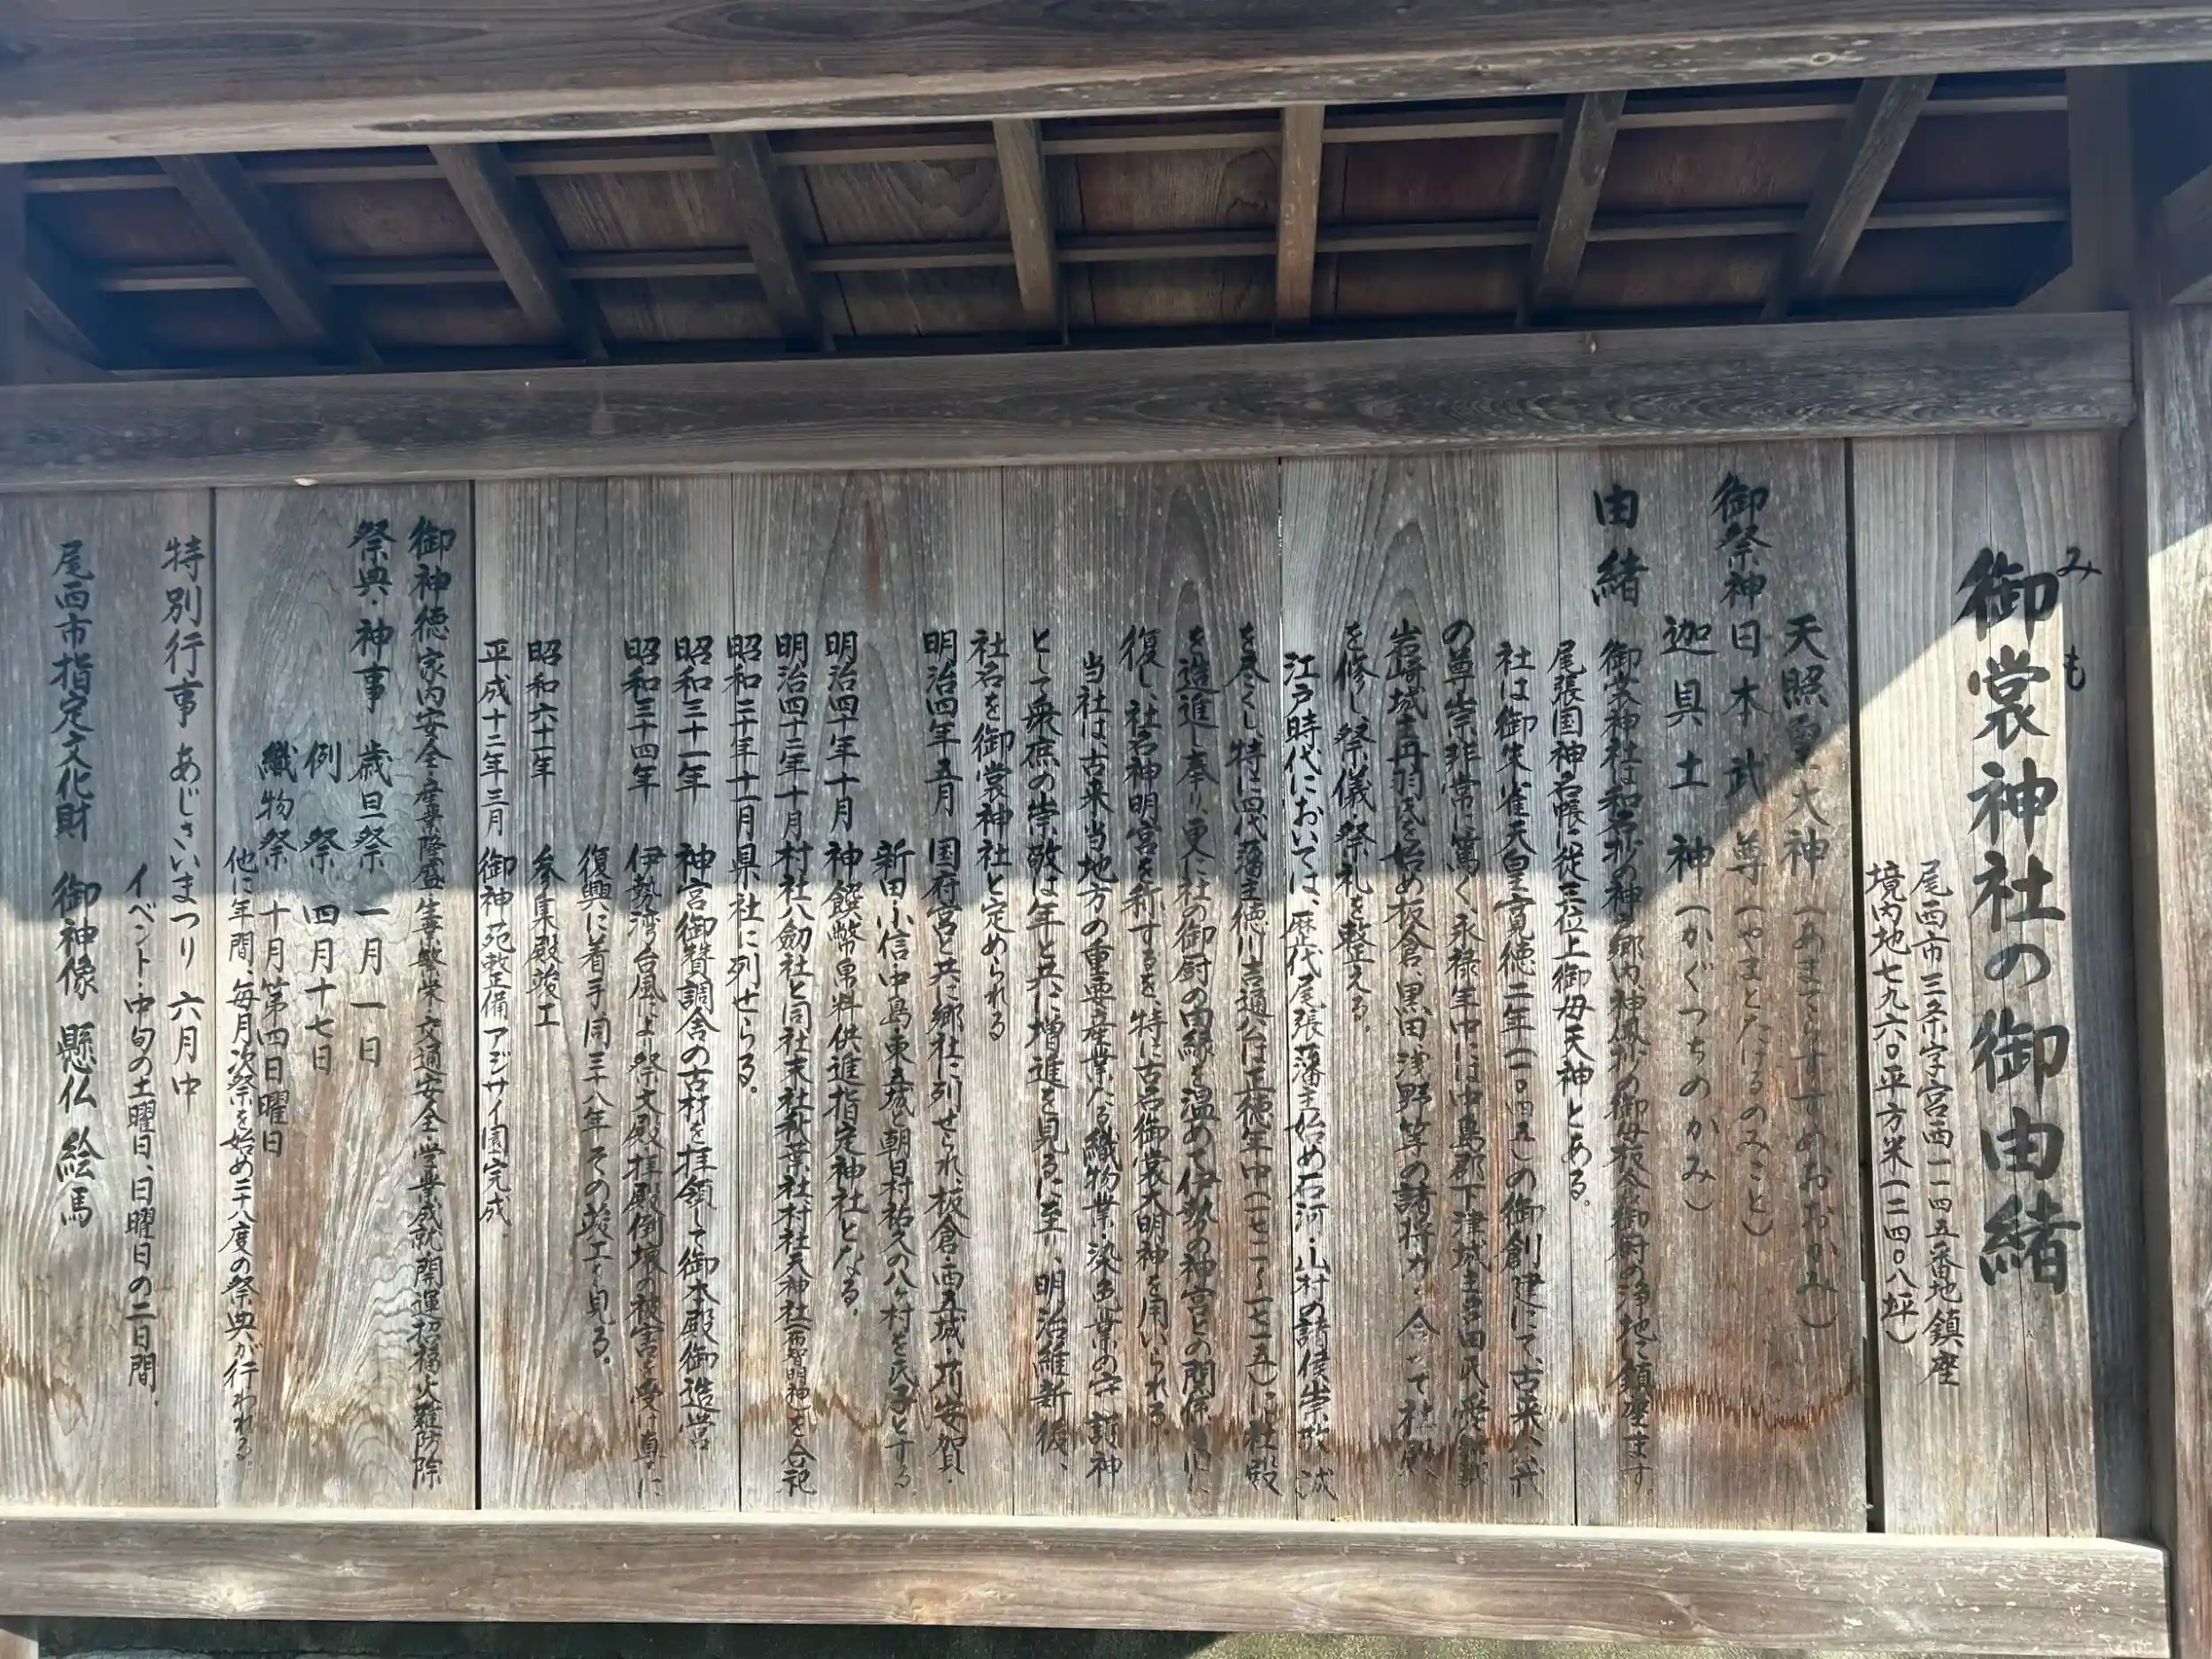 御裳神社の御由緒
みも
尾西市三条字宮西一一四五番地鎮座
境内地七九六〇平方米(二四〇八坪)
天照皇大神(あまてらすすめおおかみ)
御祭神日本武尊(やまとたけるのみこと)
迦具土神(かぐつちのかみ)
由緒
御裳神社は和名抄の神戸郷内、神鳳抄の御母板倉御厨の浄地に鎮座ます。
尾張国神名帳に従三位上御母天神とある。
社は御朱雀天皇寛徳二年(一〇四五)の御創建にて、古来八代
の尊崇非常に篤く、永禄年中には中島郡下津城主
岩崎城主丹羽氏を始め板倉、黒田、浅野等の諸将力を合せて社殿
を修し祭儀・祭礼を整える。
江戸時代においては、歴代尾張藩主始め石河・山村の諸侯崇敬誠
を尽くし、特に四代藩主徳川吉通公は正徳年中(一七一一~一七一五)に社殿
を造進し奉り、更に社の御厨の由縁を温めて伊勢の神宮との関係
復し、社名神明宮を称するを、特に古名御裳大明神を用いられる。
当社は、古来当地方の重要産業たる織物業・染色業の守護神
として衆庶の崇敬は年と共に増進を見るに至り、明治維新後、
社名を御裳神社と定められる
明治四年五月 国府宮と共に郷社に列せられ、板倉・西五城・苅安賀・
新田・小信中島・東五城と朝日村祐久の八ヶ村を氏子とする。
明治四十年十月 神饌幣帛料供進指定神社となる。
明治四十二年十月 村社八劔社と同社末社秋葉社、村社天神社(布智明神)を合祀
昭和二十年十一月県社に列せらる。
昭和三十一年 神宮御贊調舎の古材を拝領して御本殿御造営
昭和三十四年 伊勢湾台風により祭文殿拝殿倒壊の被害を受け直ちに
復興に着手、同三十八年その竣工を見る。
昭和六十一年 参集殿竣工
平成十二年三月 御神苑整備アジサイ園完成。
御神徳家内安全・産業隆盛・生業繁栄・交通安全・学業成就・開運招福・火難防除
祭典・神事 歳旦祭 一月一日
例祭 四月十七日
織物祭 十月第四日曜日
他に年間、毎月月次祭を始め二十八度の祭典が行われる。
特別行事 あじさいまつり 六月中
イベント・中旬の土曜日、日曜日の二日間。
尾西市指定文化財 御神像 懸仏 絵馬